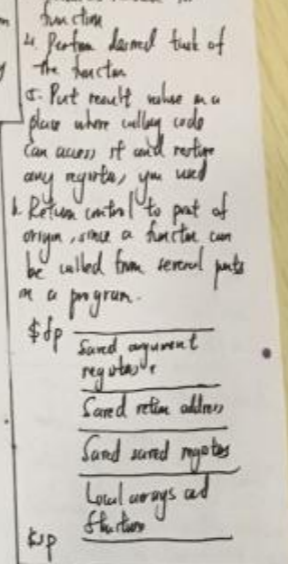 function
4. Perform desired task of
the function
5. Put result value in a
place where calling code
can access it and restore
any registers, you used
6. Return control to point of
origin, since a function can
be called from several points
in a program.
$fp
Saved argument
registers
Saved return address
Saved saved registers
Local arrays and
structures
$sp